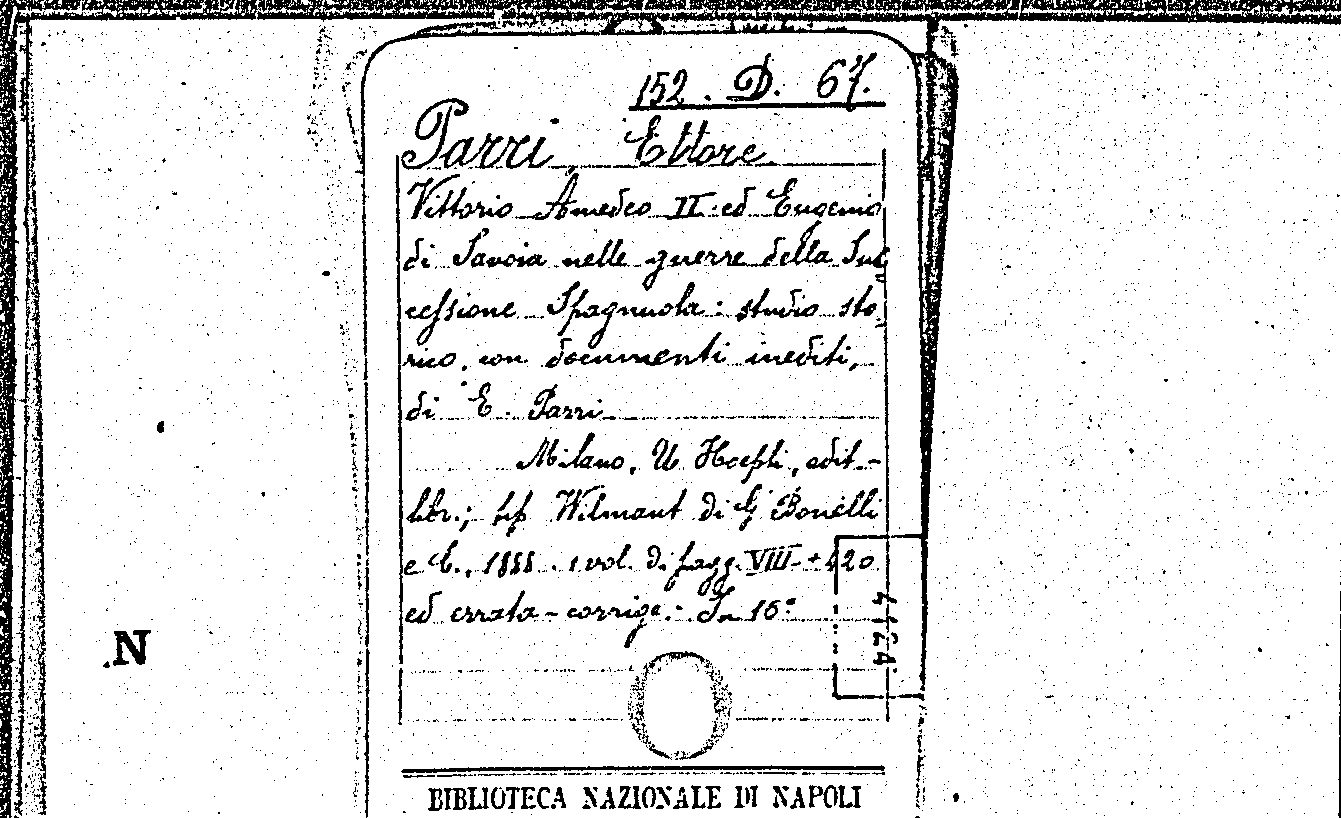 152. D. 67.
Parri, Ettore
Vittorio Amedeo II ed Eugenio
di Savoia nelle guerre della Suc
cessione Spagnuola: studio sto
rico, con documenti inediti,
di E. Parri
Milano, U. Hoepli, edit.-
libr.; tip. Wilmant di G. Bonelli
e C., 1888. 1 vol. di pagg. VIII + 420
ed errata-corrige. In 16°
N
BIBLIOTECA NAZIONALE DI NAPOLI